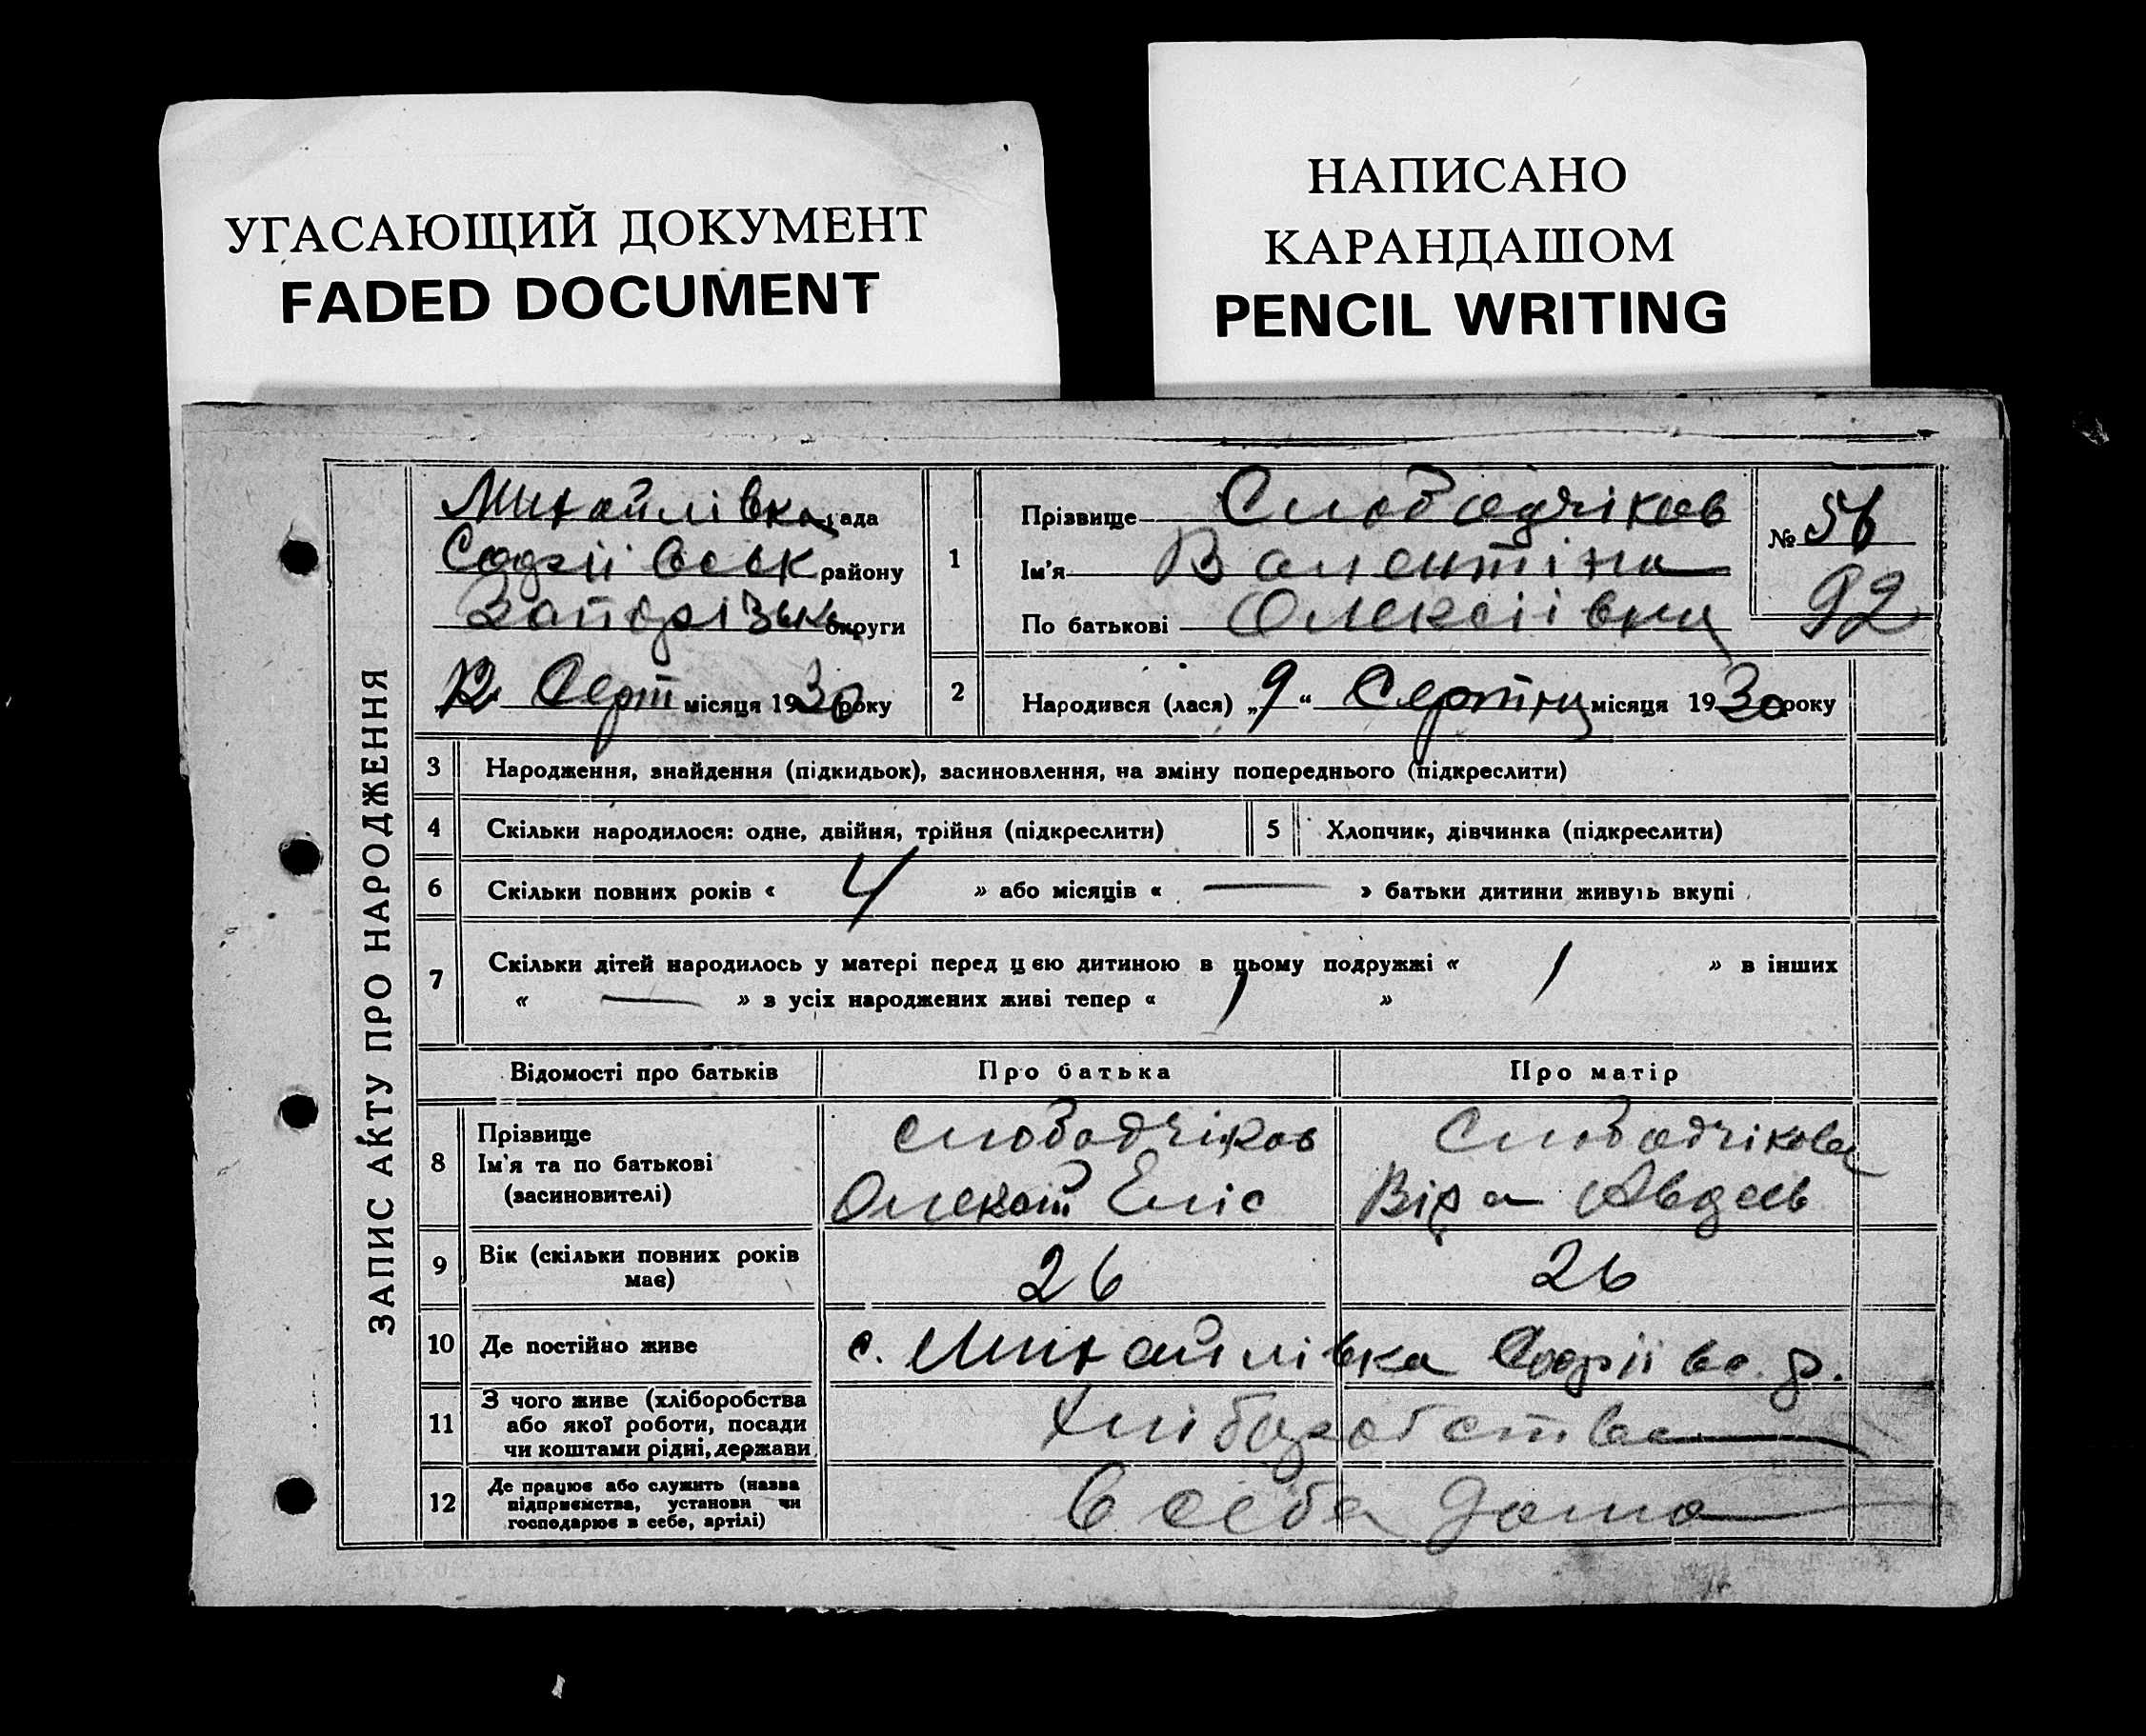 УГАСАЮЩИЙ ДОКУМЕНТ
FADED DOCUMENT
НАПИСАНО
КАРАНДАШОМ
PENCIL WRITING
ЗАПИС АКТУ ПРО НАРОДЖЕННЯ
Михайлівка рада
району
Запорізьк округи
12 Серп місяця 1930 року
1
Прізвище Слободчіков
Ім'я Валентіна
По батькові Олексіівна
№ 56
92
2 Народився (лася) „9“ Серпня місяця 1930 року
3 Народження, знайдення (підкидьок), засиновлення, на зміну попереднього (підкреслити)
4 Скільки народилося: одне, двійня, трійня (підкреслити) 5 Хлопчик, дівчинка (підкреслити)
6 Скільки повних років « 4 » або місяців « — » батьки дитини живуть вкупі
7 Скільки дітей народилось у матері перед цею дитиною в цьому подружжі « 1 » в інших
« — » з усіх народжених живі тепер « 1 »
Відомості про батьків Про батька Про матір
8 Прізвище Слободчіков Слободчікова
Ім'я та по батькові
(засиновителі) Еліс Віра Авдеев
9 Вік (скільки повних років має) 26 26
10 Де постійно живе с. Михайлівка р.
11 З чого живе (хліборобства
або якої роботи, посади
чи коштами рідні, держави Хліборобство
12 Де працює або служить (назва
підприємства, установи чи
господарює в себе, артілі) в себе дома